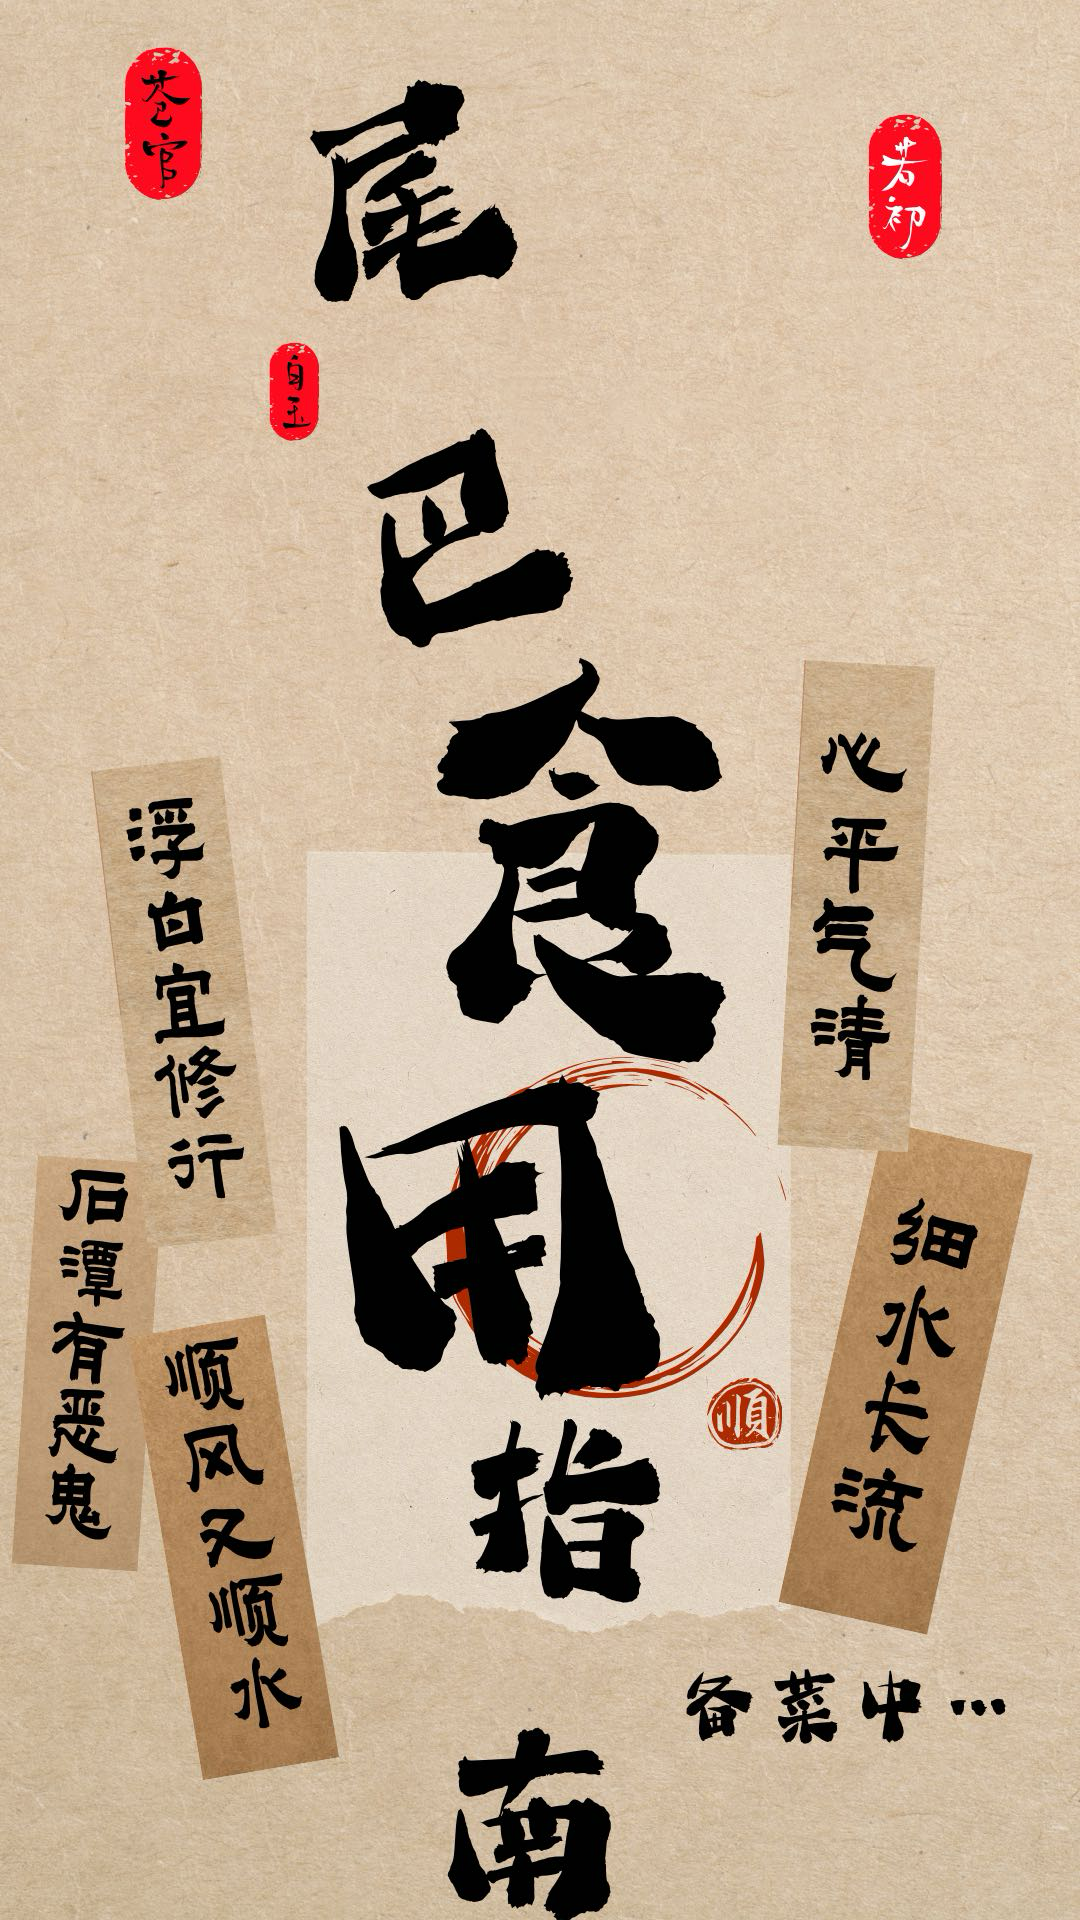 苍官
若初
白玉
尾巴食用指南
心平气清
浮白宜修行
细水长流
石潭有恶鬼
顺风又顺水
順
备菜中…